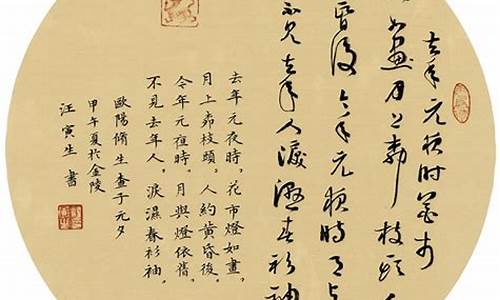 去年元夜時花市
如畫月上柳枝頭人
昏後今年元夜時月與
不見去年人淚濕春衫袖
去年元夜時，花市燈如畫，
月上柳枝頭，人約黃昏後，
今年元夜時，月與燈依舊，
不見去年人，淚濕春衫袖，
歐陽脩生查子元夕
甲午夏於金陵
汪寅生書